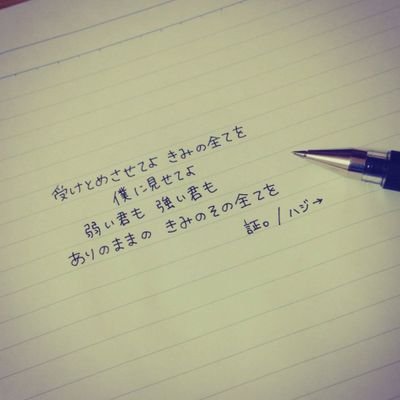 受けとめさせてよ きみの全てを
僕に見せてよ
弱い君も 強い君も
ありのままの きみのその全てを
証。/ ハジ→